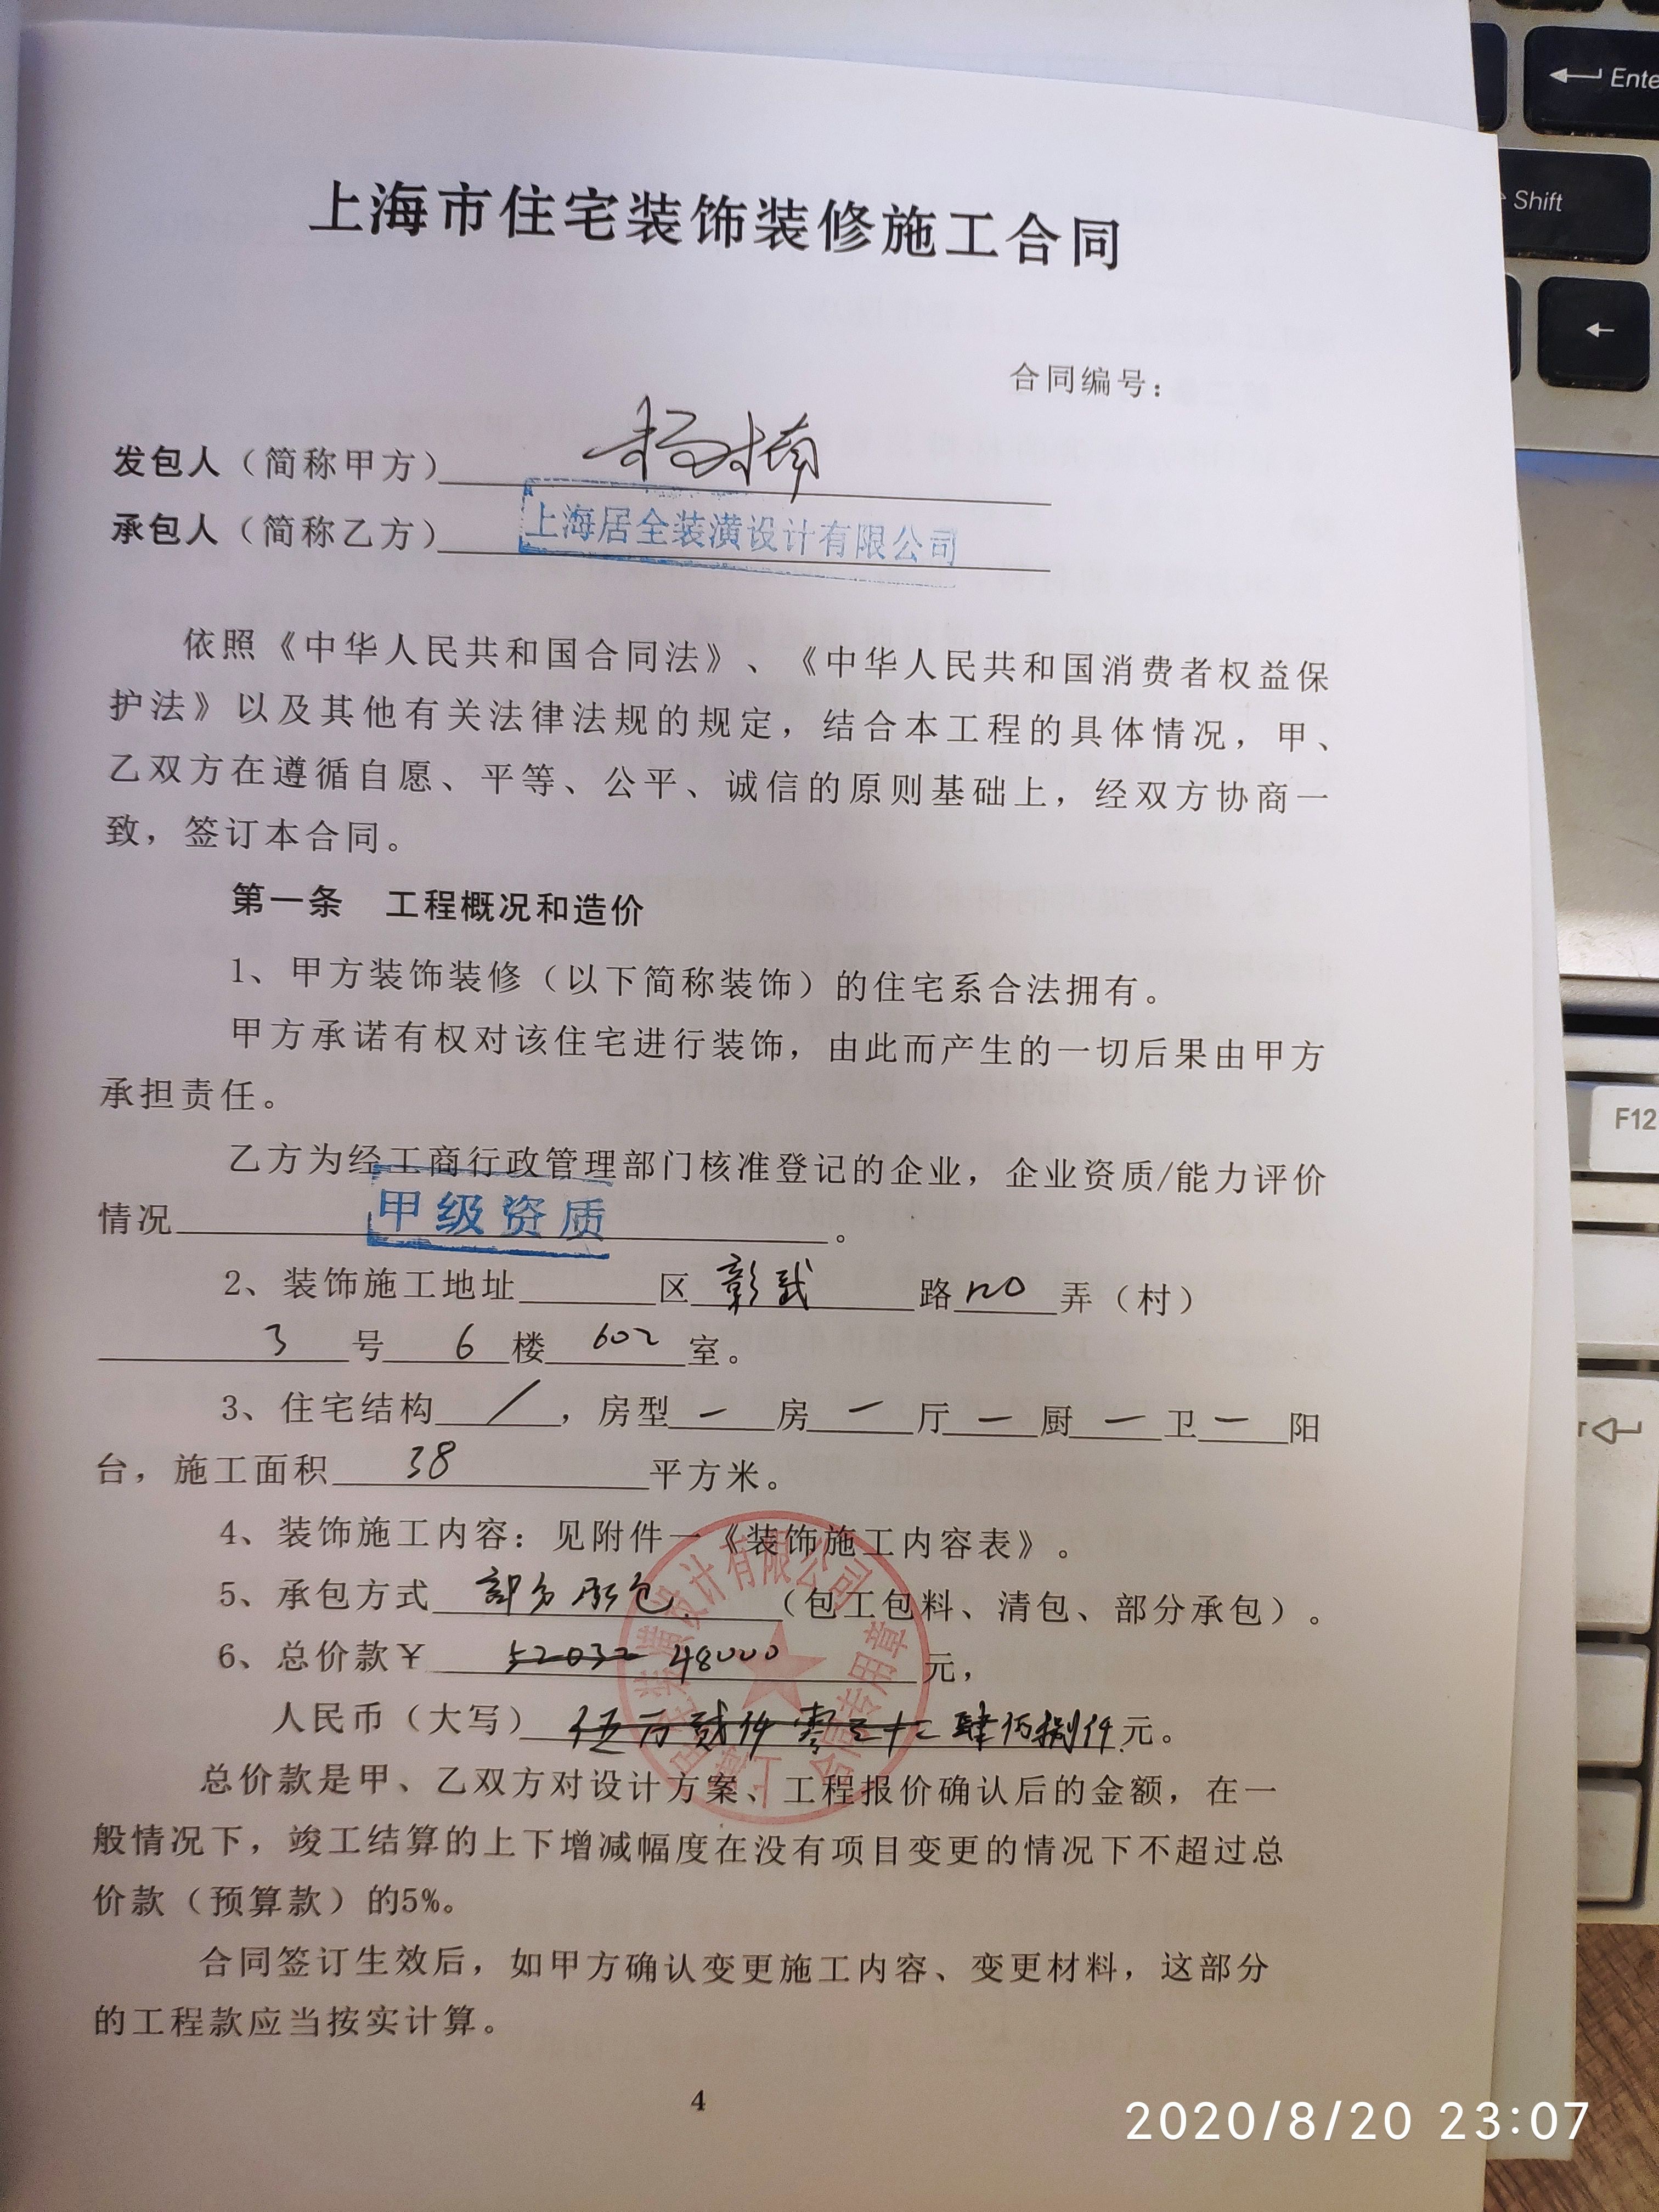 Enter
Shift
←
上海市住宅装饰装修施工合同
合同编号：
发包人（简称甲方）杨楠
承包人（简称乙方）上海居全装潢设计有限公司
依照《中华人民共和国合同法》、《中华人民共和国消费者权益保
护法》以及其他有关法律法规的规定，结合本工程的具体情况，甲、
乙双方在遵循自愿、平等、公平、诚信的原则基础上，经双方协商一
致，签订本合同。
第一条 工程概况和造价
1、甲方装饰装修（以下简称装饰）的住宅系合法拥有。
甲方承诺有权对该住宅进行装饰，由此而产生的一切后果由甲方
承担责任。
F12
乙方为经工商行政管理部门核准登记的企业，企业资质/能力评价
情况 甲级资质 。
2、装饰施工地址 区 彰武 路 120 弄（村）
3 号 6 楼 602 室。
3、住宅结构 / ，房型 一 房 一 厅 一 厨 一 卫 一 阳
台，施工面积 38 平方米。
4、装饰施工内容：见附件一《装饰施工内容表》。
5、承包方式 部分承包. （包工包料、清包、部分承包）。
6、总价款￥ 52032 48000 元，
人民币（大写） 伍万贰仟零三十二 肆万捌仟 元。
总价款是甲、乙双方对设计方案、工程报价确认后的金额，在一
般情况下，竣工结算的上下增减幅度在没有项目变更的情况下不超过总
价款（预算款）的5%。
合同签订生效后，如甲方确认变更施工内容、变更材料，这部分
的工程款应当按实计算。
装潢设计有限公司
合同专用章
4
2020/8/20 23:07